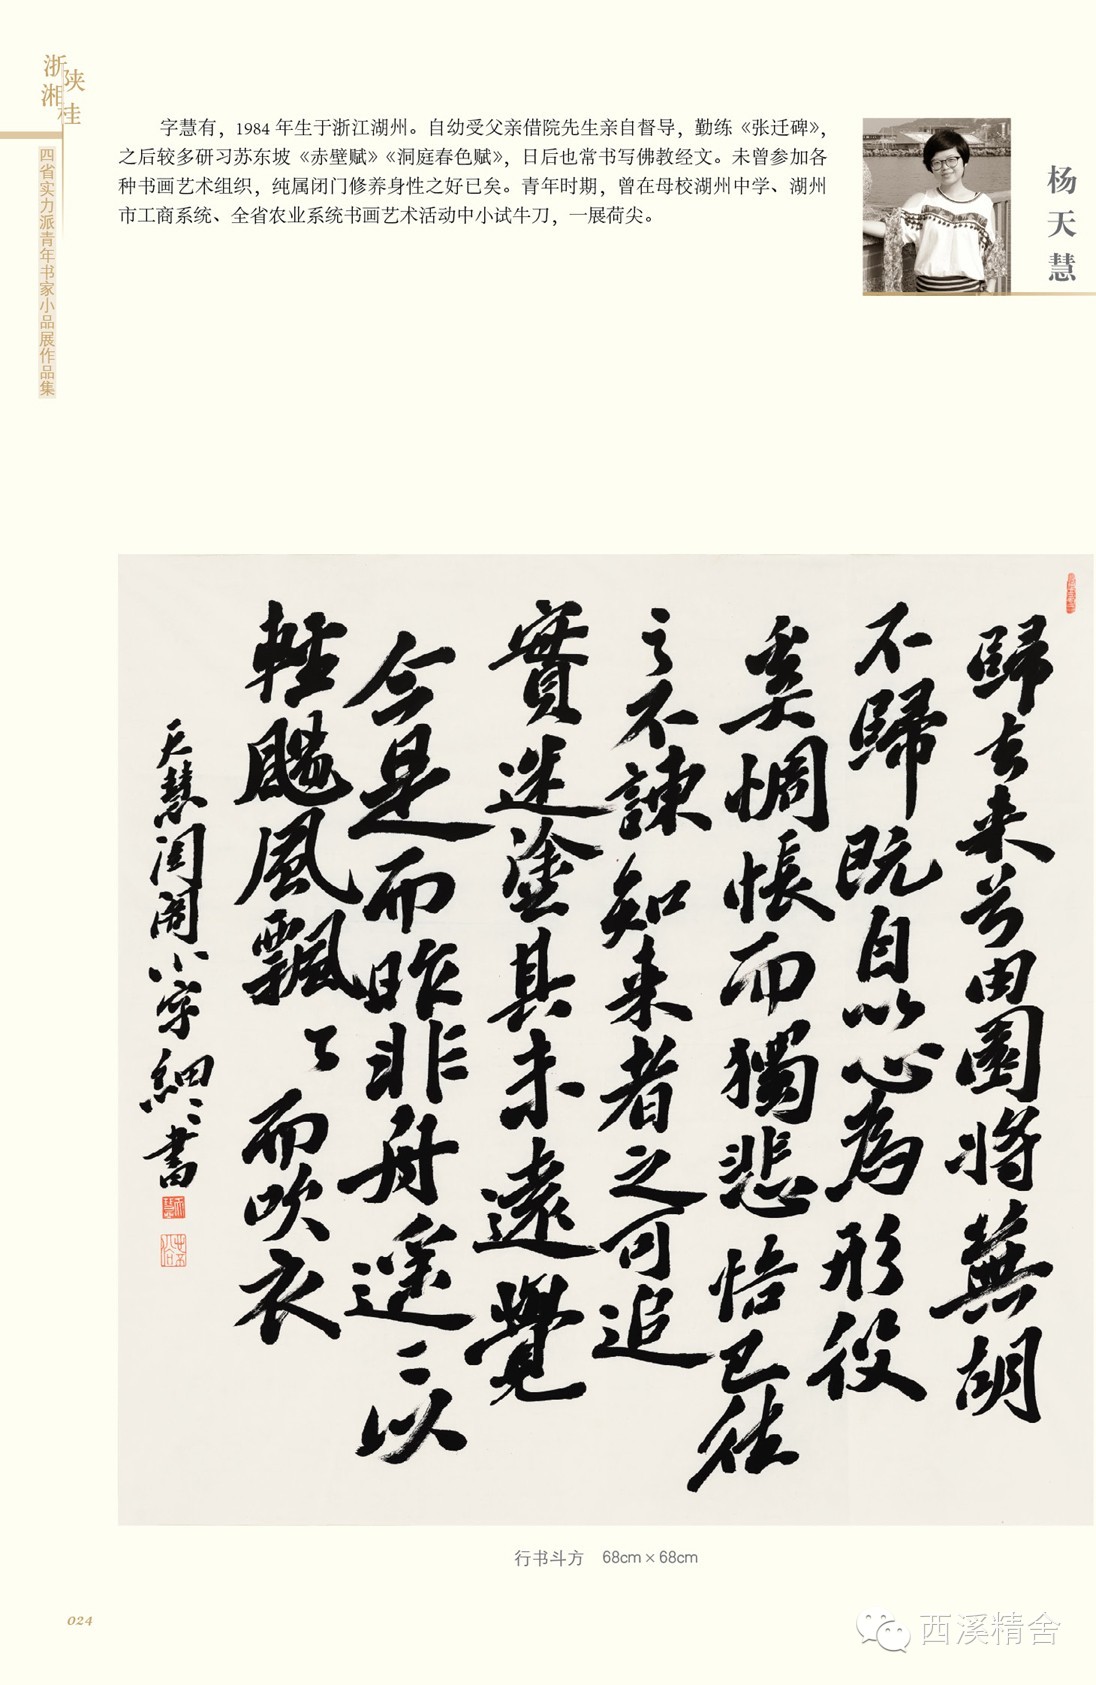 浙陕
湘桂
四省实力派青年书家小品展作品集
字慧有，1984 年生于浙江湖州。自幼受父亲借院先生亲自督导，勤练《张迁碑》，
之后较多研习苏东坡《赤壁赋》《洞庭春色赋》，日后也常书写佛教经文。未曾参加各
种书画艺术组织，纯属闭门修养身性之好已矣。青年时期，曾在母校湖州中学、湖州
市工商系统、全省农业系统书画艺术活动中小试牛刀，一展荷尖。
杨天慧
歸去来兮田園将蕪胡
不歸既自以心為形役
奚惆悵而獨悲悟已往
之不諫知来者之可追
實迷塗其未遠覺
今是而昨非舟遥〻以
軽颺風飄〻而吹衣
天慧閨閣小字細〻書
天慧
行书斗方 68cm×68cm
024
西溪精舍